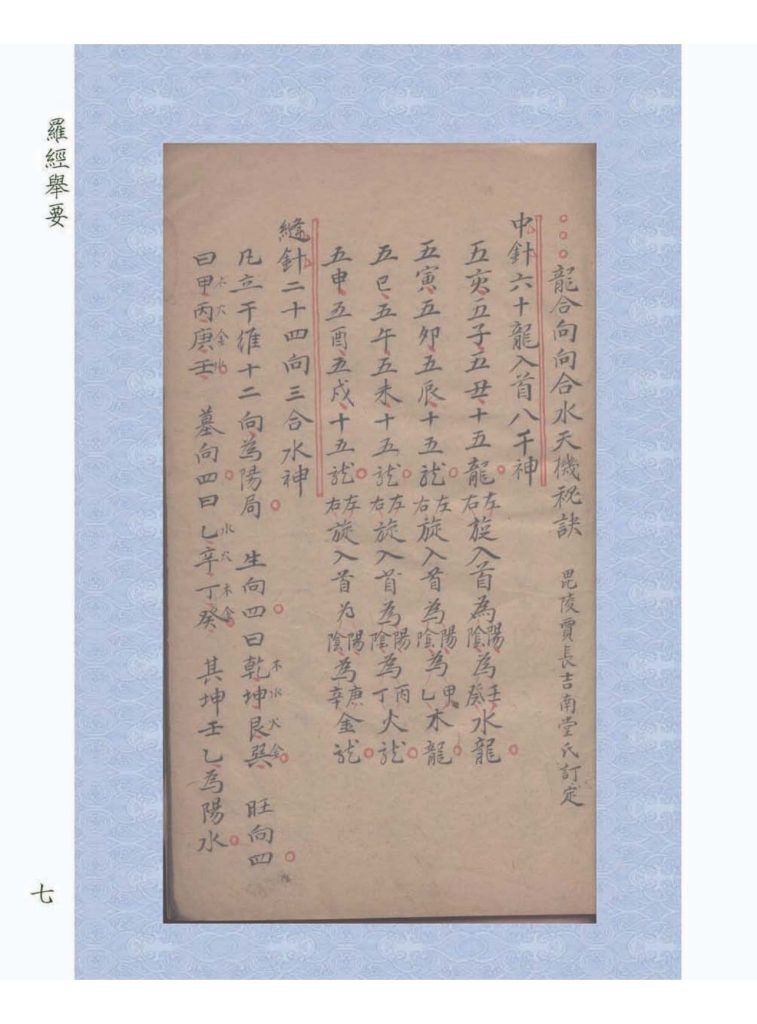 羅經舉要
龍合向向合水天機秘訣　毘陵賈長吉南堂氏訂定
中針六十龍入首八千神
五亥五子五丑十五龍左右旋入首為陽陰為壬癸水龍
五寅五卯五辰十五龍左右旋入首為陽陰為甲乙木龍
五巳五午五未十五龍左右旋入首為陽陰為丙丁火龍
五申五酉五戌十五龍左右旋入首为陽陰為庚辛金龍
縫針二十四向三合水神
凡立干維十二向為陽局　生向四曰乾木坤水艮火巽金　旺向四
曰甲木丙火庚金壬水　墓向四曰乙水辛火丁木癸金　其坤壬乙為陽水
七